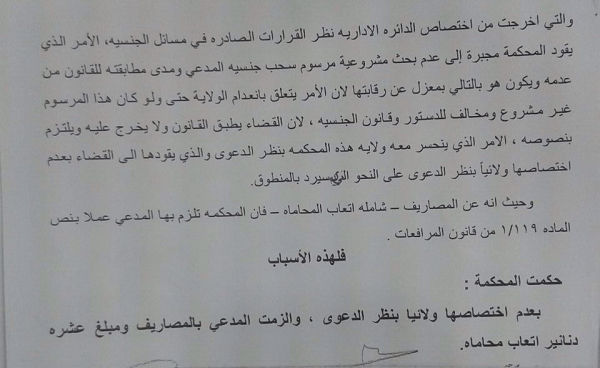 والتي اخرجت من اختصاص الدائره الاداريه نظر القرارات الصادره في مسائل الجنسيه، الأمر الذي
يقود المحكمة مجبرة إلى عدم بحث مشروعية مرسوم سحب جنسيه المدعي ومدى مطابقته للقانون من
عدمه ويكون هو بالتالي بمعزل عن رقابتها لان الأمر يتعلق بانعدام الولاية حتى ولو كان هذا المرسوم
غير مشروع ومخالف للدستور وقانون الجنسيه ، لان القضاء يطبق القانون ولا يخرج عليه ويلتزم
بنصوصه ، الامر الذي ينحسر معه ولايه هذه المحكمه بنظر الدعوى والذي يقودها الى القضاء بعدم
اختصاصها ولائياً بنظر الدعوى على النحو سيرد بالمنطوق.
وحيث انه عن المصاريف – شامله اتعاب المحاماه – فان المحكمه تلزم بها المدعي عملا بنص
الماده ١/١١٩ من قانون المرافعات .
فلهذه الأسباب
حكمت المحكمة :
بعدم اختصاصها ولائيا بنظر الدعوى ، والزمت المدعي بالمصاريف ومبلغ عشره
دنانير اتعاب محاماه.